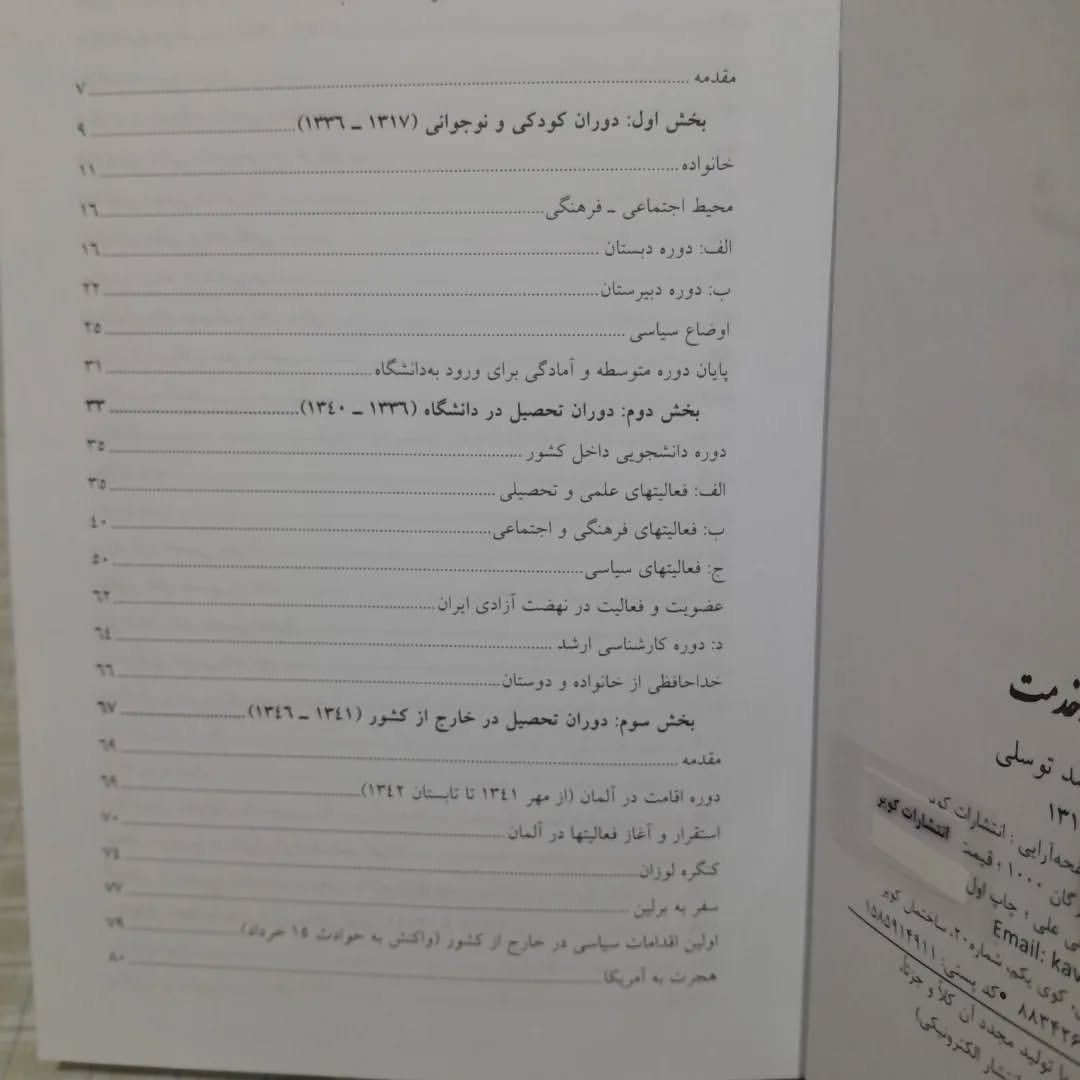 مقدمه ........ ۷
بخش اول: دوران کودکی و نوجوانی (۱۳۱۷ ـ ۱۳۳۶) ........ ۹
خانواده ........ ۱۱
محیط اجتماعی ـ فرهنگی ........ ۱۶
الف: دوره دبستان ........ ۱۶
ب: دوره دبیرستان ........ ۲۲
اوضاع سیاسی ........ ۲۵
پایان دوره متوسطه و آمادگی برای ورود به‌دانشگاه ........ ۳۱
بخش دوم: دوران تحصیل در دانشگاه (۱۳۳۶ ـ ۱۳۴۰) ........ ۳۳
دوره دانشجویی داخل کشور ........ ۳۵
الف: فعالیتهای علمی و تحصیلی ........ ۳۵
ب: فعالیتهای فرهنگی و اجتماعی ........ ۴۰
ج: فعالیتهای سیاسی ........ ۵۰
عضویت و فعالیت در نهضت آزادی ایران ........ ۶۲
د: دوره کارشناسی ارشد ........ ۶۴
خداحافظی از خانواده و دوستان ........ ۶۶
بخش سوم: دوران تحصیل در خارج از کشور (۱۳۴۱ ـ ۱۳۴۶) ........ ۶۷
مقدمه ........ ۶۹
دوره اقامت در آلمان (از مهر ۱۳۴۱ تا تابستان ۱۳۴۲) ........ ۶۹
استقرار و آغاز فعالیتها در آلمان ........ ۷۰
کنگره لوزان ........ ۷۴
سفر به برلین ........ ۷۷
اولین اقدامات سیاسی در خارج از کشور (واکنش به حوادث ۱۵ خرداد) ........ ۷۹
هجرت به آمریکا ........ ۸۰
خدمت
توسلی
۱۳۱
صفحه‌آرایی : انتشارات
انتشارات کویر
۱۰۰۰ ، قیمت
علی ؛ چاپ اول
Email: kav
کوی یکم، شماره ۲۰، ساختمان کویر
۸۸۳۴۲۶ • کد پستی: ۱۵۸۵۹۱۴۹۱۱
تولید مجدد آن کلاً و جزئاً
انتشار الکترونیکی)